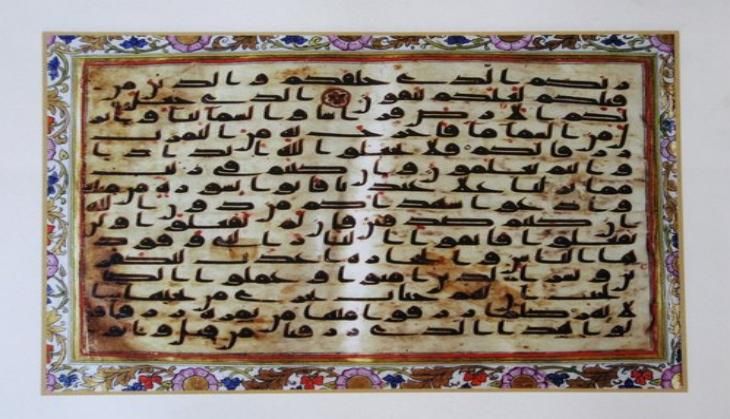 ربكم الذي خلقكم والذين من
قبلكم لعلكم تتقون الذي جعل
لكم الارض فرشا والسما بنا وانز
ل من السما ما فاخرج به من الثمرت
رزقا لكم فلا تجعلوا لله اندادا
وانتم تعلمون وان كنتم في ريب
مما نزلنا على عبدنا فاتوا بسورة من مثله
وادعوا شهداكم من دون الله ا
ن كنتم صدقين فان لم تفعلوا ولن
تفعلوا فاتقوا النار التي وقود
ها الناس والحجارة اعدت للكفر
ين وبشر الذين امنوا وعملوا الصـ
لحت ان لهم جنات تجري من تحتها ا
لانهر كلما رزقوا منها من ثمرة رزقا قا
لوا هذا الذي رزقنا من قبل واتوا